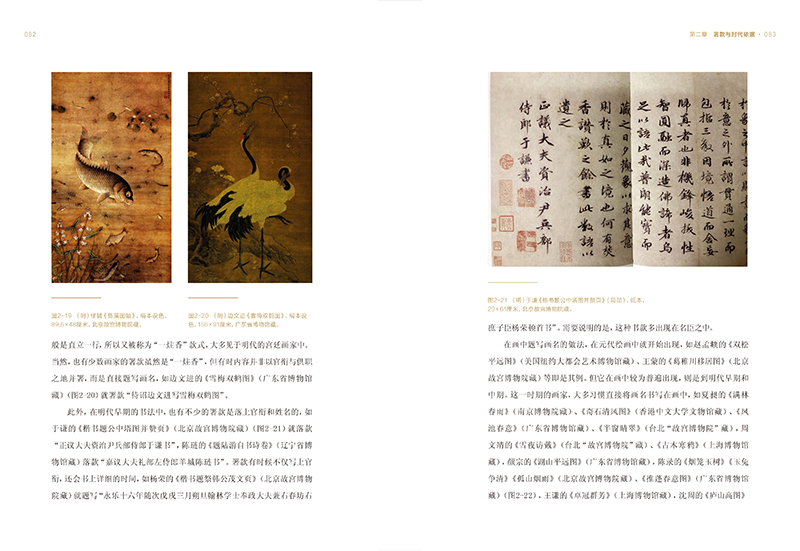 082
图2-19 （明）缪辅《鱼藻图轴》，绢本设色，
89.6×48厘米，北京故宫博物院藏。
图2-20 （明）边文进《雪梅双鹤图》，绢本设
色，156×91厘米，广东省博物馆藏。
般是直立一行，所以又被称为“一炷香”款式，大多见于明代的宫廷画家中。
当然，也有少数画家的署款虽然是“一炷香”，但有时内容并非以官衔与供职
之地并署，而是直接题写画名，如边文进的《雪梅双鹤图》（广东省博物馆
藏）（图2-20）就署款“待诏边文进写雪梅双鹤图”。
此外，在明代早期的书法中，也有不少的署款是落上官衔和姓名的，如
于谦的《楷书题公中塔图并赞页》（北京故宫博物院藏）（图2-21）就落款
“正议大夫资治尹兵部侍郎于谦书”，陈琏的《题陆游自书诗卷》（辽宁省博
物馆藏）落款“嘉议大夫礼部左侍郎羊城陈琏书”。署款有时候不仅写上官
衔，还会书上详细的时间，如杨荣的《楷书题蔡韩公茂文页》（北京故宫博物
院藏）就题写“永乐十六年随次戊戌三月朔旦翰林学士奉政大夫兼右春坊右
第二章 署款与时代依据 · 083
於意之外所谓贯通一理而
包括三教因境悟道而舍妄
归真者也非机锋峻拔性
智圆融而深造佛谛者乌
足以语此我普朗能宝而
藏之日夕
则於真如之境也何有焚
香赞叹之余书此数语以
遗之
正议大夫资治尹兵部
侍郎于谦书
图2-21 （明）于谦《楷书题公中塔图并赞页》（局部），纸本，
29×61厘米，北京故宫博物院藏。
庶子臣杨荣顿首书”。需要说明的是，这种书款多出现在名臣之中。
在画中题写画名的做法，在元代绘画中就开始出现，如赵孟頫的《双松
平远图》（美国纽约大都会艺术博物馆藏）、王蒙的《葛稚川移居图》（北京
故宫博物院藏）等即是其例。但它在画中较为普遍出现，则是到明代早期和
中期。这一时期的画家，大多习惯直接将画名书写在画中，如夏昶的《满林
春雨》（南京博物院藏）、《奇石清风图》（香港中文大学文物馆藏）、《凤
池春意》（广东省博物馆藏）、《半窗晴翠》（台北“故宫博物院”藏），周
文靖的《雪夜访戴》（台北“故宫博物院”藏）、《古木寒鸦》（上海博物馆
藏），颜宗的《湖山平远图》（广东省博物馆藏），陈录的《烟笼玉树》《玉兔
争清》《孤山烟雨》（北京故宫博物院藏）、《推蓬春意图》（广东省博物馆
藏）（图2-22），王谦的《卓冠群芳》（上海博物馆藏），沈周的《庐山高图》